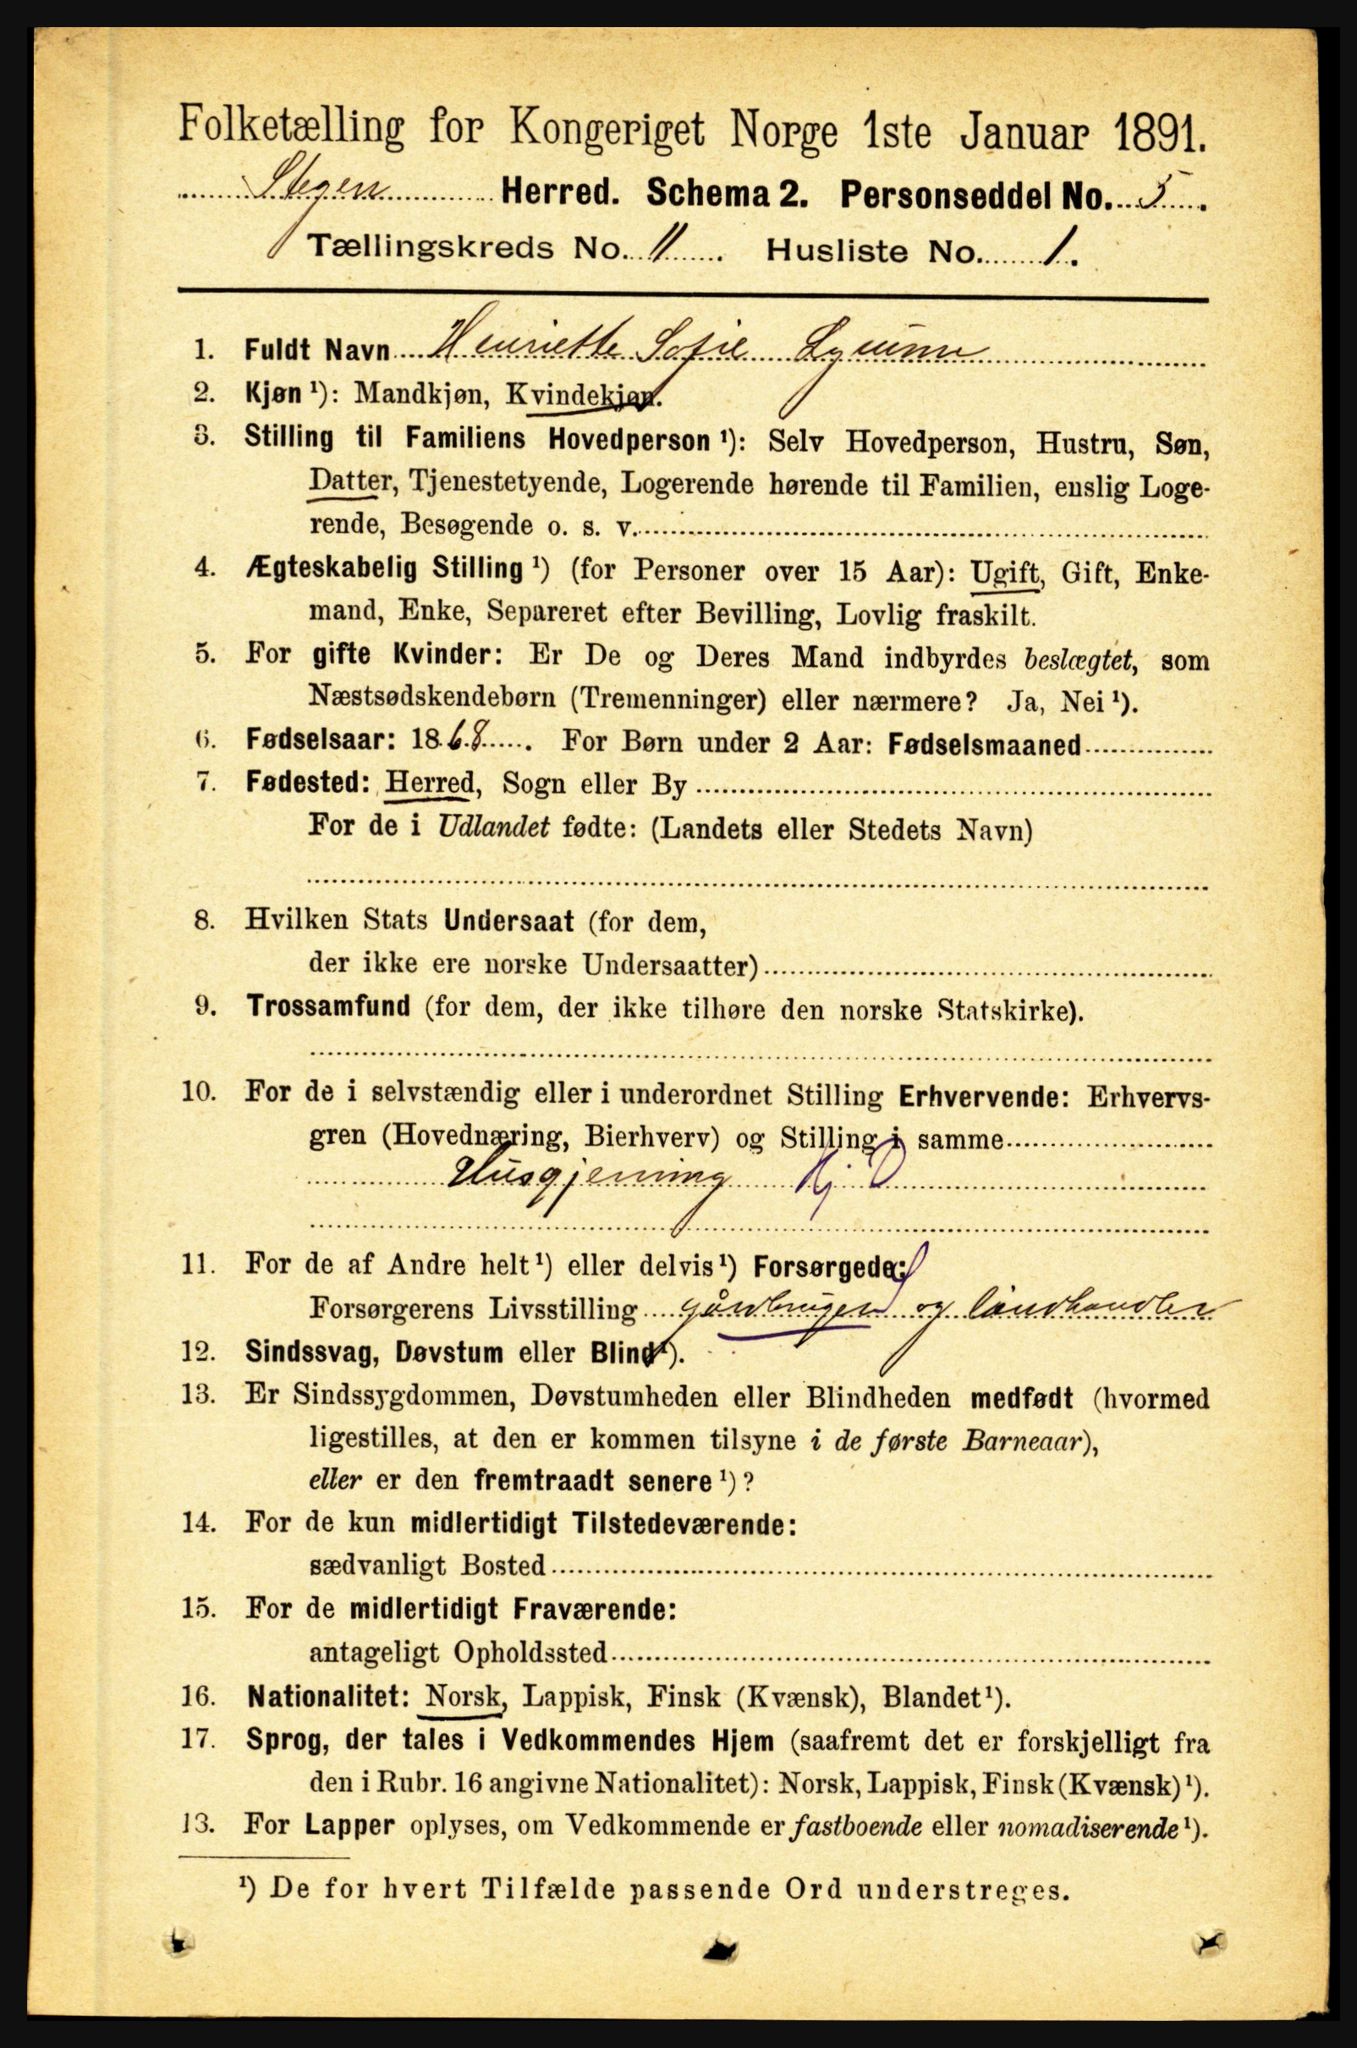 Folketælling for Kongeriget Norge 1ste Januar 1891.
Stegen Herred. Schema 2. Personseddel No. 5.
Tællingskreds No. 11. Husliste No. 1.
1. Fuldt Navn Henriette Sofie
2. Kjøn ¹): Mandkjøn, Kvindekjøn.
3. Stilling til Familiens Hovedperson ¹): Selv Hovedperson, Hustru, Søn,
Datter, Tjenestetyende, Logerende hørende til Familien, enslig Loge-
rende, Besøgende o. s. v.
4. Ægteskabelig Stilling ¹) (for Personer over 15 Aar): Ugift, Gift, Enke-
mand, Enke, Separeret efter Bevilling, Lovlig fraskilt.
5. For gifte Kvinder: Er De og Deres Mand indbyrdes beslægtet, som
Næstsødskendebørn (Tremenninger) eller nærmere? Ja, Nei ¹).
6. Fødselsaar: 1868. For Børn under 2 Aar: Fødselsmaaned
7. Fødested: Herred, Sogn eller By
For de i Udlandet fødte: (Landets eller Stedets Navn)
8. Hvilken Stats Undersaat (for dem,
der ikke ere norske Undersaatter)
9. Trossamfund (for dem, der ikke tilhøre den norske Statskirke).
10. For de i selvstændig eller i underordnet Stilling Erhvervende: Erhvervs-
gren (Hovednæring, Bierhverv) og Stilling i samme
Husgjerning Hj O
11. For de af Andre helt ¹) eller delvis ¹) Forsørgede:
Forsørgerens Livsstilling gårdbruger og landhandler
12. Sindssvag, Døvstum eller Blind ¹).
13. Er Sindssygdommen, Døvstumheden eller Blindheden medfødt (hvormed
ligestilles, at den er kommen tilsyne i de første Barneaar),
eller er den fremtraadt senere ¹)?
14. For de kun midlertidigt Tilstedeværende:
sædvanligt Bosted
15. For de midlertidigt Fraværende:
antageligt Opholdssted
16. Nationalitet: Norsk, Lappisk, Finsk (Kvænsk), Blandet ¹).
17. Sprog, der tales i Vedkommendes Hjem (saafremt det er forskjelligt fra
den i Rubr. 16 angivne Nationalitet): Norsk, Lappisk, Finsk (Kvænsk) ¹).
13. For Lapper oplyses, om Vedkommende er fastboende eller nomadiserende ¹).
¹) De for hvert Tilfælde passende Ord understreges.